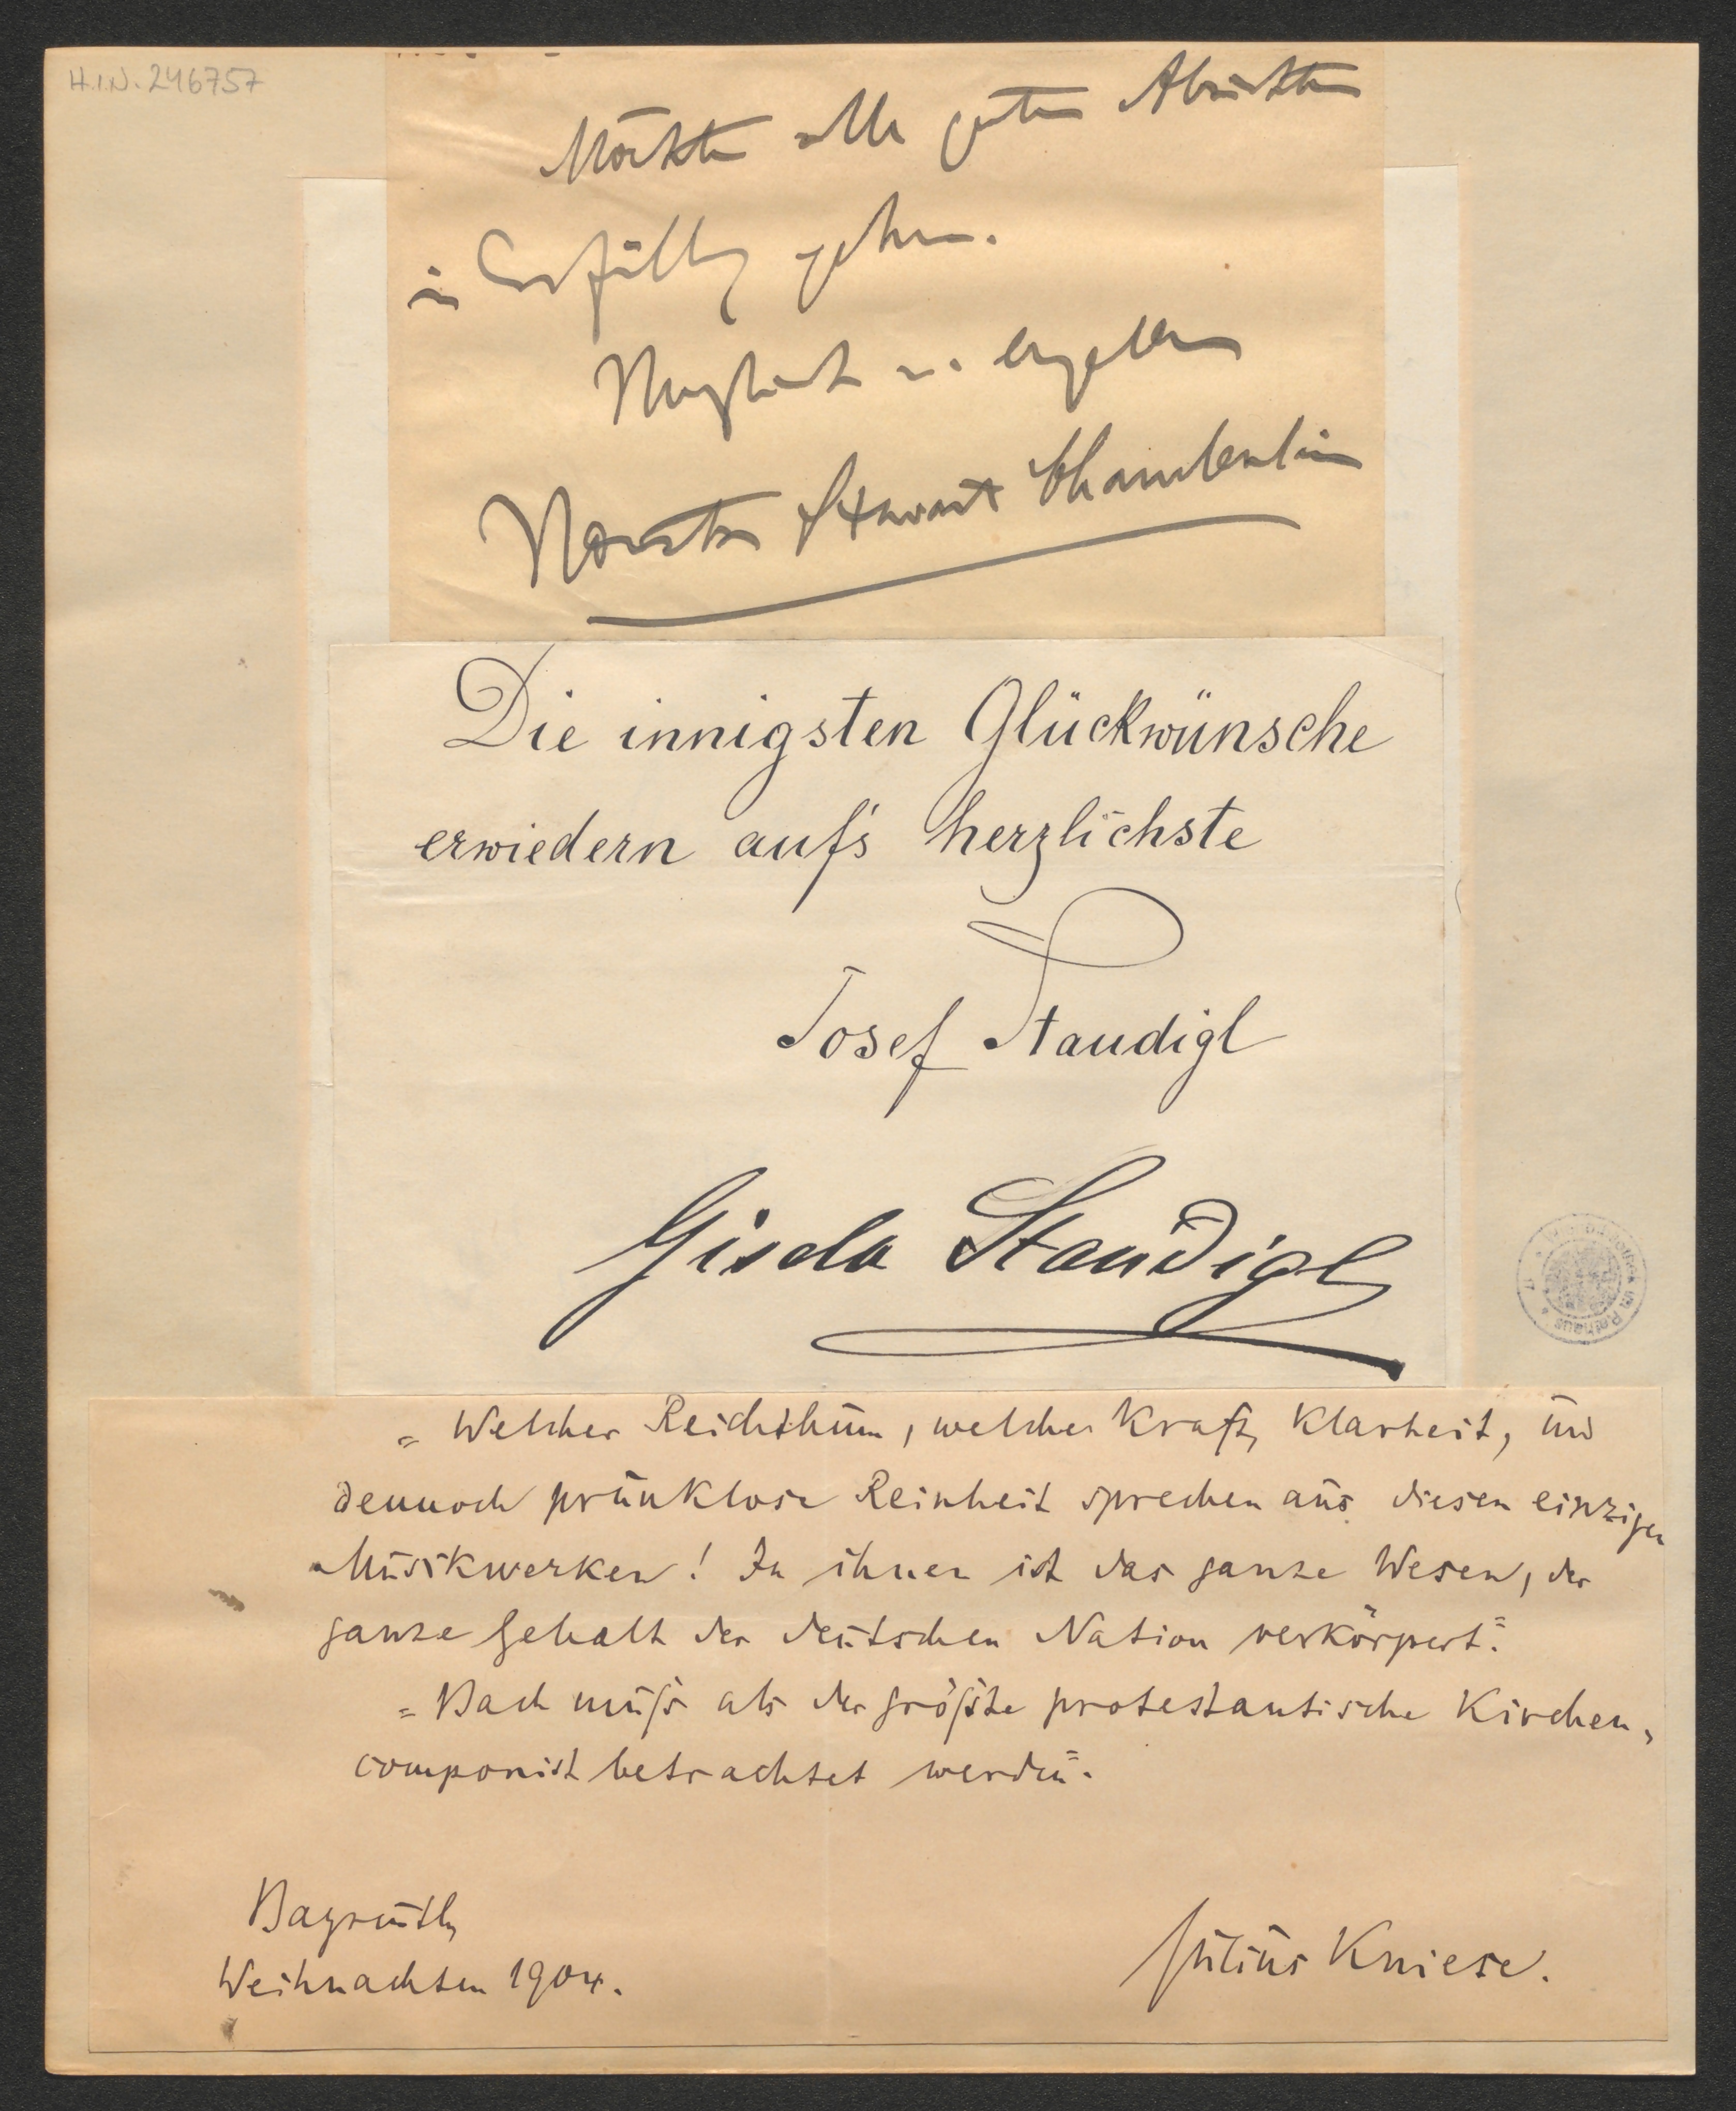 H.I.N. 246757
Möchten alle guten Absichten
in Erfüllg gehen.
u. ergeben
Houston Stewart Chamberlain
Die innigsten Glückwünsche
erwiedern auf's herzlichste
Josef Staudigl
Gisela Staudigl
"Welcher Reichthum, welcher Kraft, Klarheit, und
dennoch prunklose Reinheit sprechen aus diesen einzigen
Musikwerken! In ihnen ist das ganze Wesen, der
ganze Gehalt der deutschen Nation verkörpert."
"Bach muß als der größte protestantische Kirchen-
componist betrachtet werden".
Bayreuth
Weihnachten 1904.
Julius Kniese.
im Rathaus